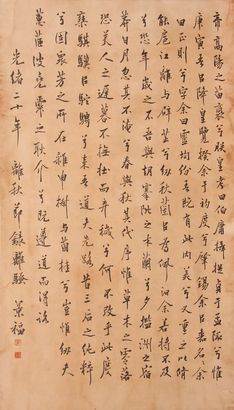 帝高陽之苗裔兮朕皇考曰伯庸攝提貞于孟陬兮惟
庚寅吾以降皇覽揆余于初度兮肇錫余以嘉名名余
曰正則兮字余曰靈均紛吾既有此內美兮又重之以脩
能扈江離與辟芷兮紉秋蘭以為佩汩余若將不及
兮恐年歲之不吾與朝搴阰之木蘭兮夕攬洲之宿
莽日月忽其不淹兮春與秋其代序惟草木之零落
恐美人之遲暮不撫壯而棄穢兮何不改乎此度
乘騏驥以馳騁兮來吾道夫先路昔三后之純粹
兮固眾芳之所在雜申椒與菌桂兮豈惟紉夫
蕙茝彼堯舜之耿介兮既遵道而得路
光緒二十年 秋節錄離騷 景福